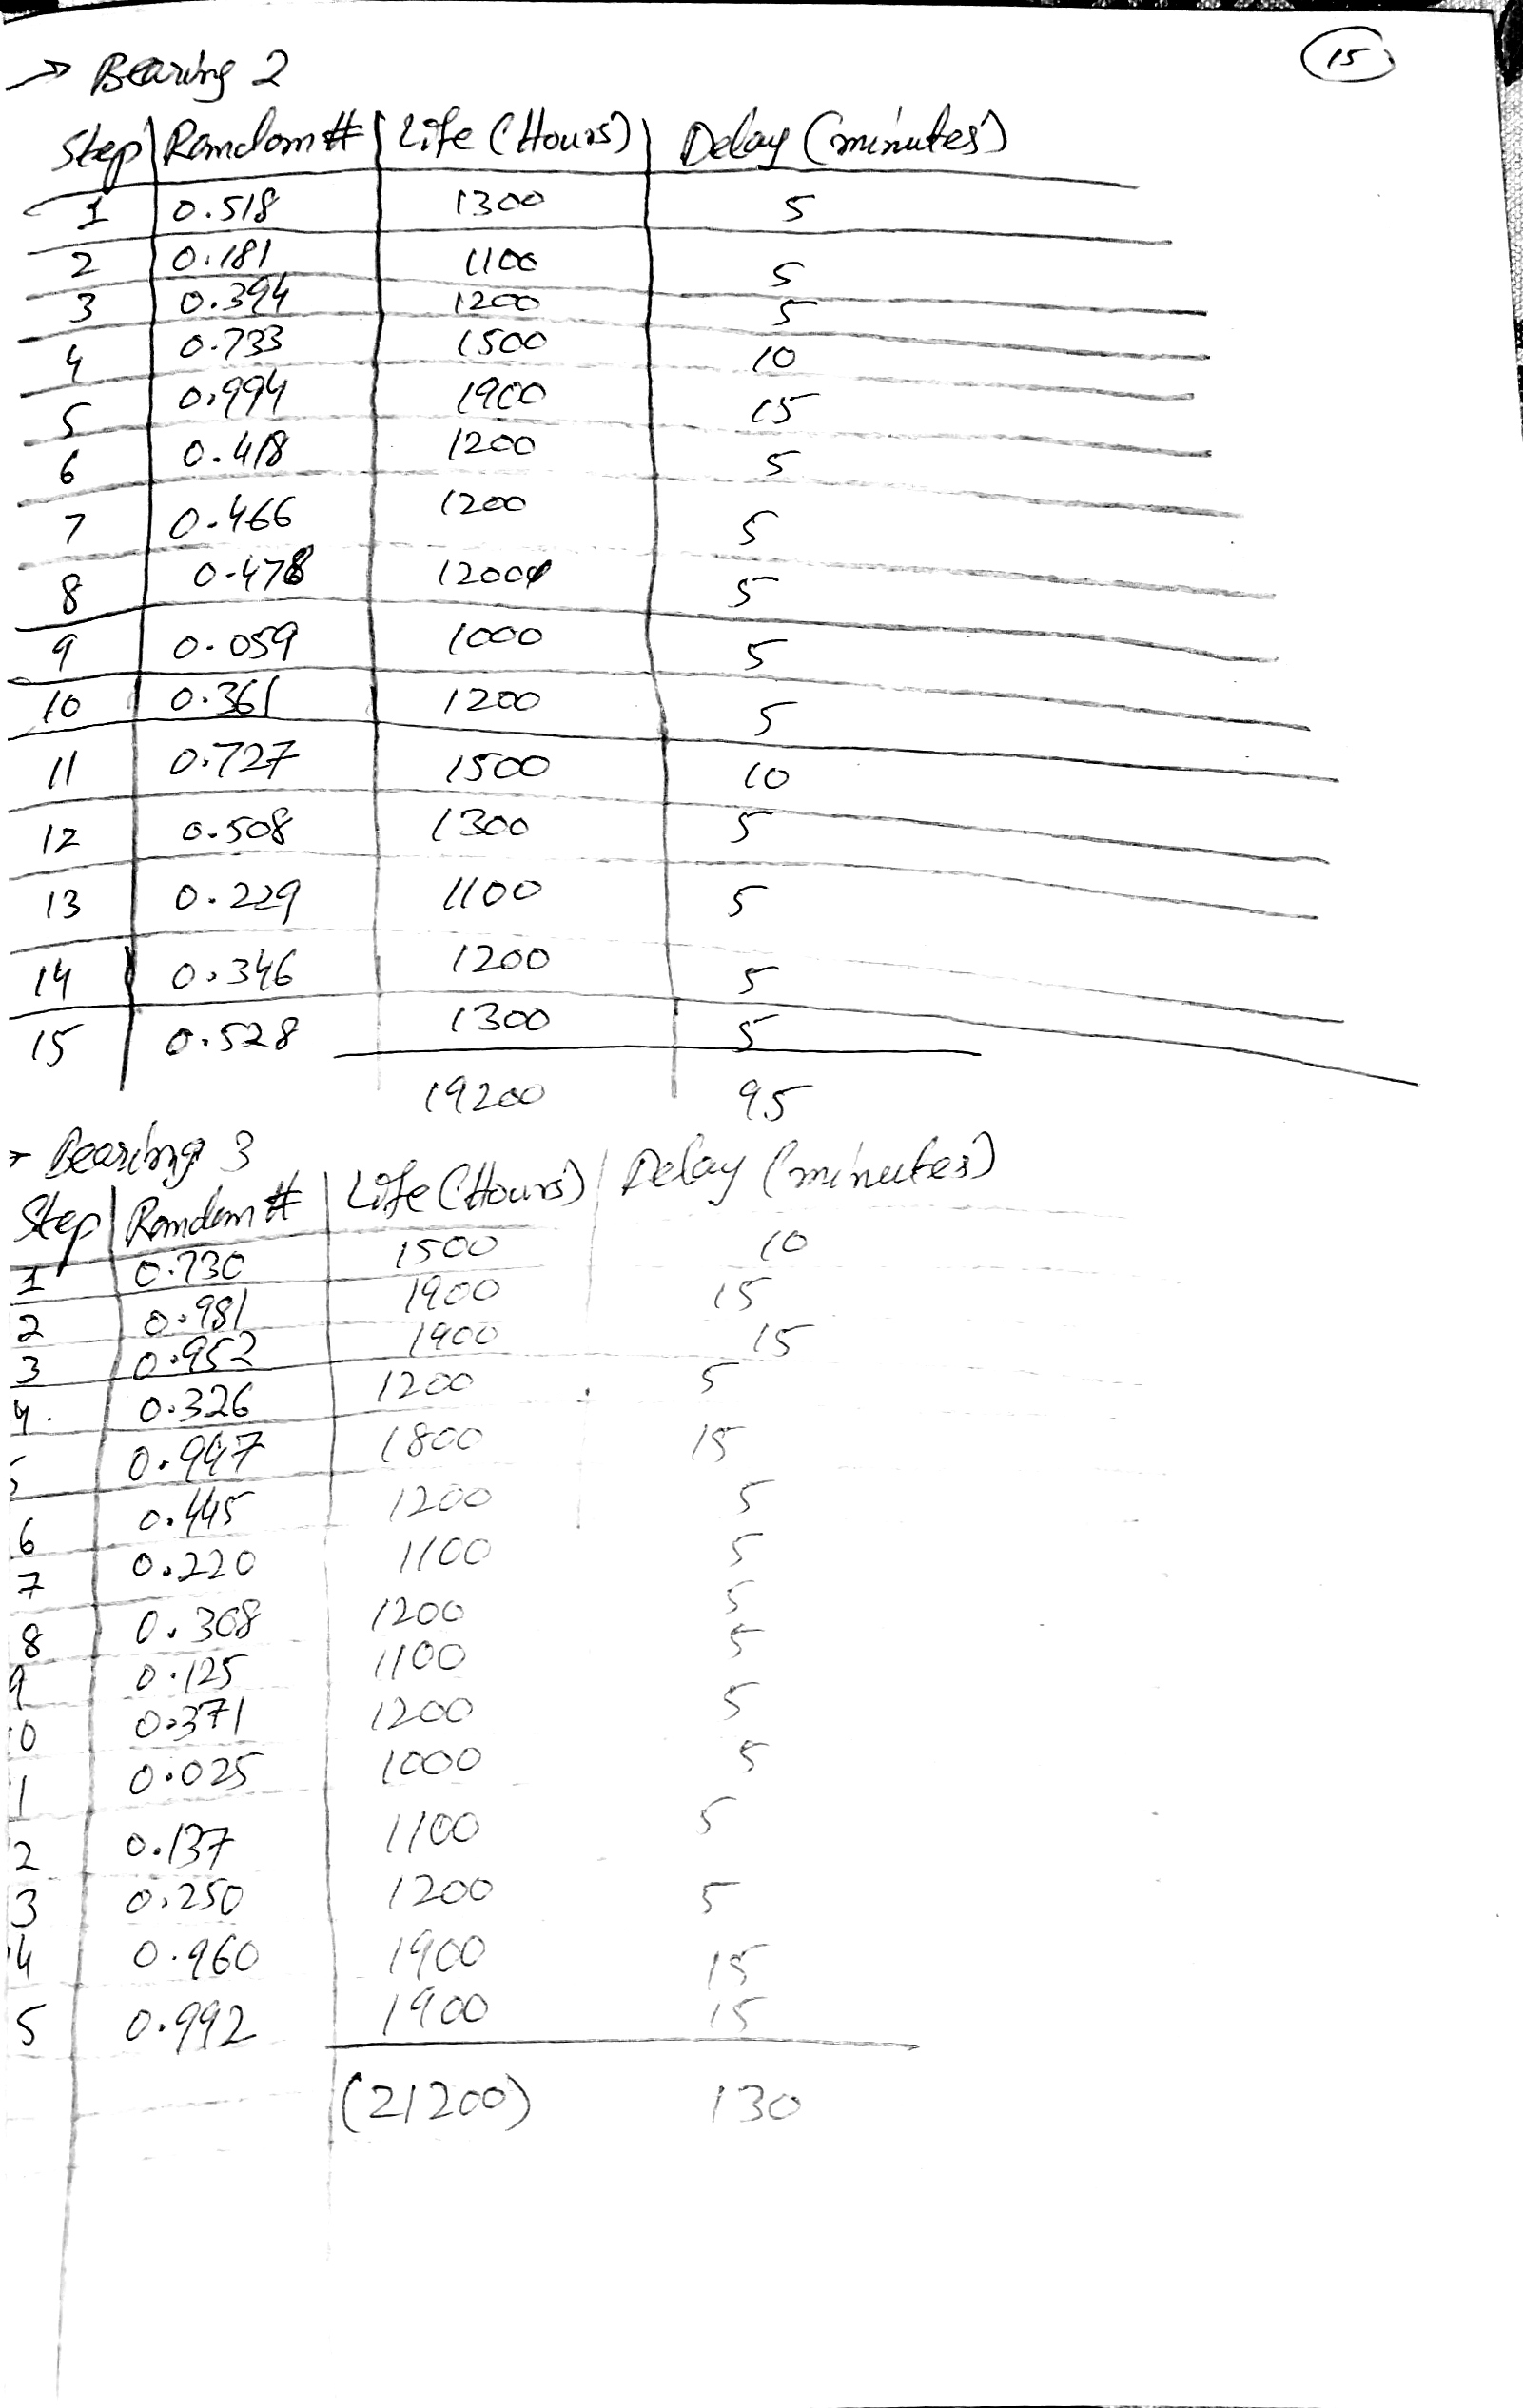 15
→ Bearing 2
Step Random# Life (Hours) Delay (minutes)
1 0.518 1300 5
2 0.181 1100 5
3 0.394 1200 5
4 0.733 1500 10
5 0.994 1900 15
6 0.418 1200 5
7 0.466 1200 5
8 0.478 1200 5
9 0.059 1000 5
10 0.361 1200 5
11 0.727 1500 10
12 0.508 1300 5
13 0.229 1100 5
14 0.346 1200 5
15 0.528 1300 5
19200 95
→ Bearing 3
Step Random # Life (Hours) Delay (minutes)
1 0.730 1500 10
2 0.981 1900 15
3 0.952 1900 15
4. 0.326 1200 5
5 0.947 1800 15
6 0.445 1200 5
7 0.220 1100 5
8 0.308 1200 5
9 0.125 1100 5
10 0.371 1200 5
1 0.025 1000 5
2 0.137 1100 5
3 0.250 1200 5
14 0.960 1900 15
5 0.992 1900 15
(21200) 130